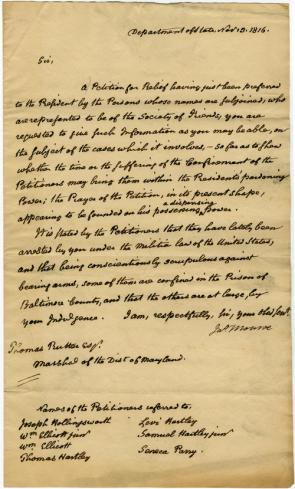 Department of State, Nov 19. 1816.
Sir,
A Petition for Relief having just been preferred
to the President by the Persons whose names are subjoined, who
are represented to be of the Society of Friends, you are
requested to give such Information as you may be able, on
the subject of the cases which it involves,—so far as to show
whether the time or the suffering of the Confinement of the
Petitioners may bring them within the President's pardoning
Power; the Prayer of the Petition, in its present shape,
a dispensing
appearing to be founded on his possessing Power.
It is stated by the Petitioners that they have lately been
arrested by you under the Militia law of the United States,
and that being conscientiously scrupulous against
bearing arms, some of them are confined in the Prison of
Baltimore County, and that the others are at large, by
your Indulgence. I am, respectfully, Sir, your Obt. Servt.
Jas. Monroe
Thomas Rutter Esqr.
Marshal of the Dist of Maryland.
Names of the Petitioners referred to.
Joseph Hollingsworth Levi Hartley
Wm Ellicott junr Samuel Hartley junr
Wm Ellicott Seneca
Thomas Hartley